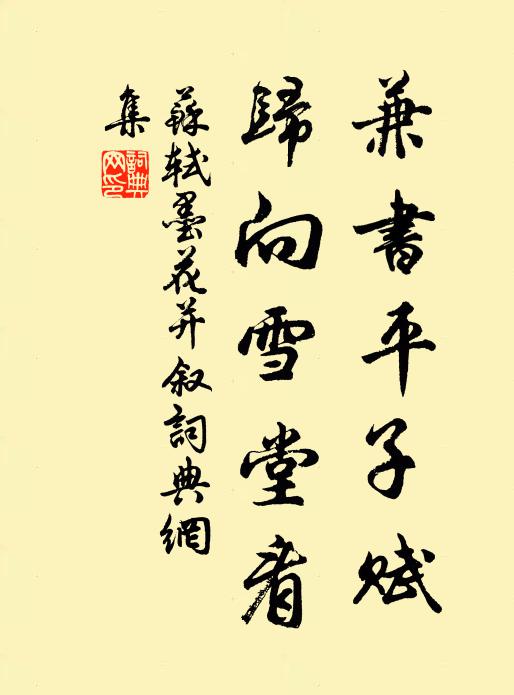 兼書平子賦
歸向雪堂看
蘇軾墨花并叙詞典網
集
詞典
网印